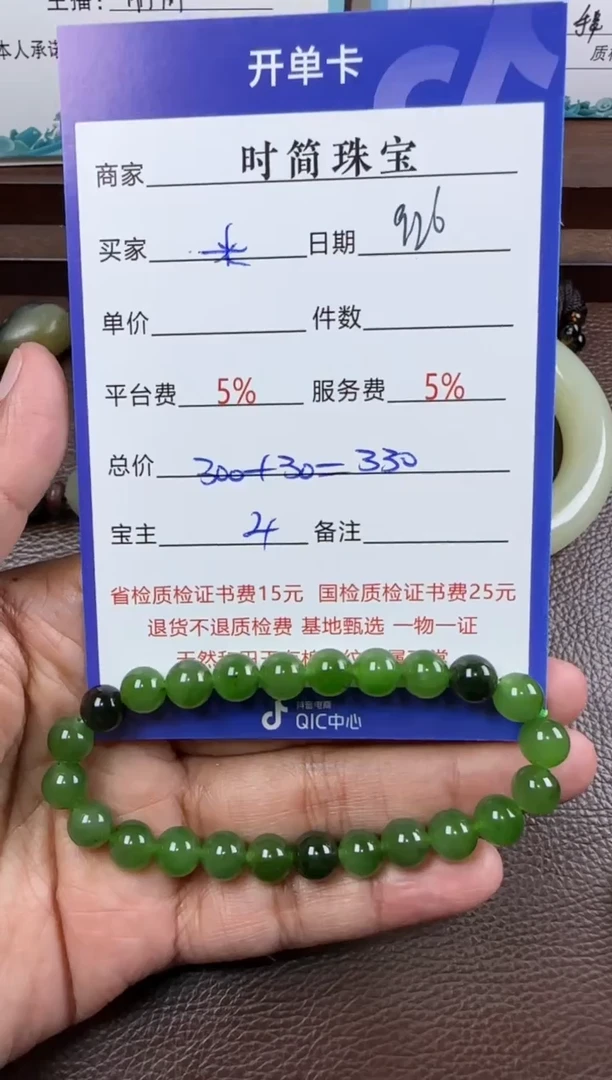 主播：
本人承诺
质检
开单卡
商家 时简珠宝
买家 米 日期 926
单价 件数
平台费 5% 服务费 5%
总价 300+30=330
宝主 4 备注
省检质检证书费15元 国检质检证书费25元
退货不退质检费 基地甄选 一物一证
天然和田玉有棉
抖音电商
QIC中心